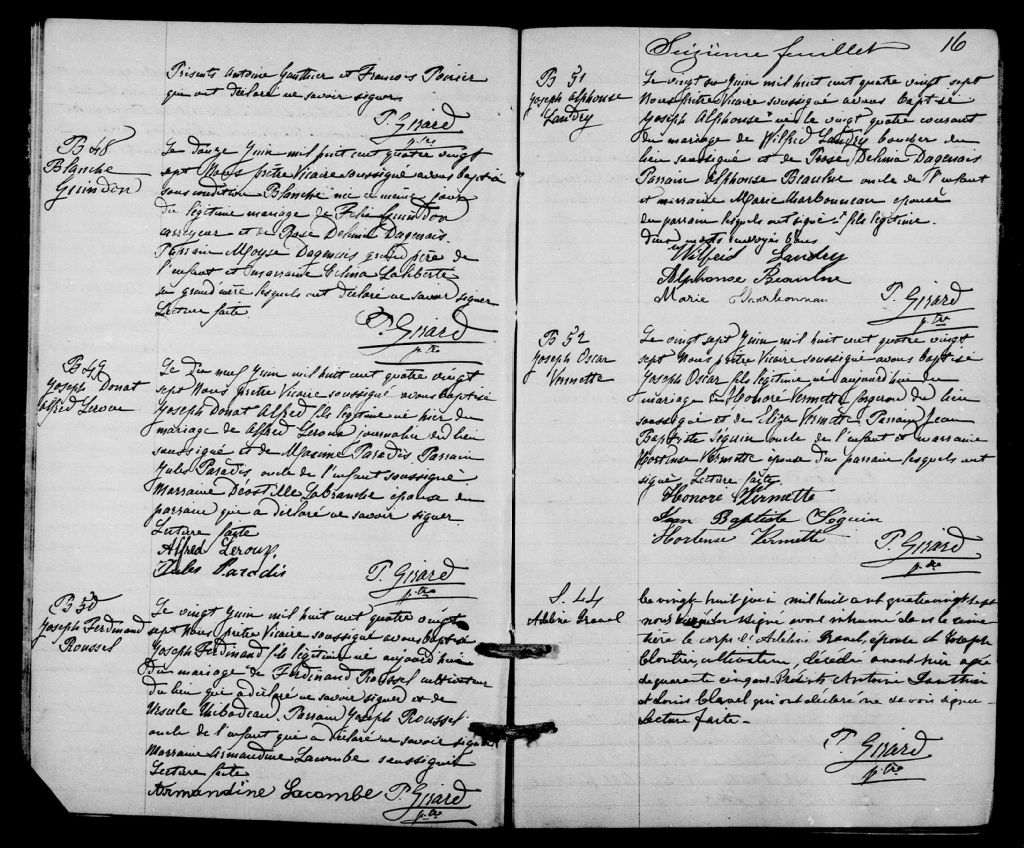 Présents Antoine Gauthier et François Poirier
qui ont déclaré ne savoir signer.
T. Girard
ptre
B 48
Blanche
Guindon
Le douze Juin mil huit cent quatre vingt
sept Nous prêtre Vicaire soussigné avons baptisé
sous condition Blanche née ce même jour
du légitime mariage de Félix Guindon
et de Rose Delima Dagenais.
Parrain Moyse Dagenais grand père de
l'enfant et marraine Laliberté
sa grand'mère lesquels ont déclaré ne savoir signer
Lecture faite
T. Girard
ptre
B 49
Joseph Donat
Alfred Leroux
Le Dix neuf Juin mil huit cent quatre vingt
sept Nous prêtre Vicaire soussigné avons baptisé
Joseph Donat Alfred fils légitime né hier du
mariage de Alfred Leroux journalier du lieu
soussigné et de Paradis Parrain
Jules Paradis oncle de l'enfant soussigné
Marraine Labranche épouse du
parrain qui a déclaré ne savoir signer
Lecture faite
Alfred Leroux
Jules Paradis
T. Girard
ptre
B 50
Joseph Ferdinand
Roussel
Le vingt Juin mil huit cent quatre vingt
sept Nous prêtre Vicaire soussigné avons baptisé
Joseph Ferdinand fils légitime né aujourd'hui
du mariage de Ferdinand Roussel cultivateur
du lieu qui a déclaré ne savoir signer et de
Ursule Thibodeau. Parrain Joseph Roussel
oncle de l'enfant qui a déclaré ne savoir signer
Marraine Armandine Lacombe soussignée
Lecture faite
Armandine Lacombe
T. Girard
ptre
Seizième feuillet 16
B 51
Joseph Alphonse
Landry
Le vingt six Juin mil huit cent quatre vingt sept
Nous prêtre Vicaire soussigné avons baptisé
Joseph Alphonse né le vingt quatre courant
du mariage de Wilfrid Landry boucher du
lieu soussigné et de Rose Delima Dagenais
Parrain Alphonse Beaulne oncle de l'enfant
et marraine Marie Charbonneau épouse
du parrain lesquels ont signé fils légitime.
Deux mots
Wilfrid Landry
Alphonse Beaulne
Marie Charbonneau
T. Girard
ptre
B 52
Joseph Oscar
Vermette
Le vingt sept Juin mil huit cent quatre vingt
sept Nous prêtre Vicaire soussigné avons baptisé
Joseph Oscar fils légitime né aujourd'hui du
mariage de Honoré Vermette forgeron du lieu
soussigné et de Eliza Vermette Parrain Jean
Baptiste Séguin oncle de l'enfant et marraine
Hortense Vermette épouse du parrain lesquels ont
signé Lecture faite
Honoré Vermette
Jean Baptiste Séguin
Hortense Vermette
T. Girard
ptre
S. 44
Le vingt huit juin mil huit cent quatre vingt sept
nous soussigné avons inhumé dans le cime
tière le corps d' épouse de Joseph
Cloutier, cultivateur, décédée avant hier agée
de quarante cinq ans. Présents Antoine Gauthier
et Louis qui ont déclaré ne savoir signer
Lecture faite.
T. Girard
ptre